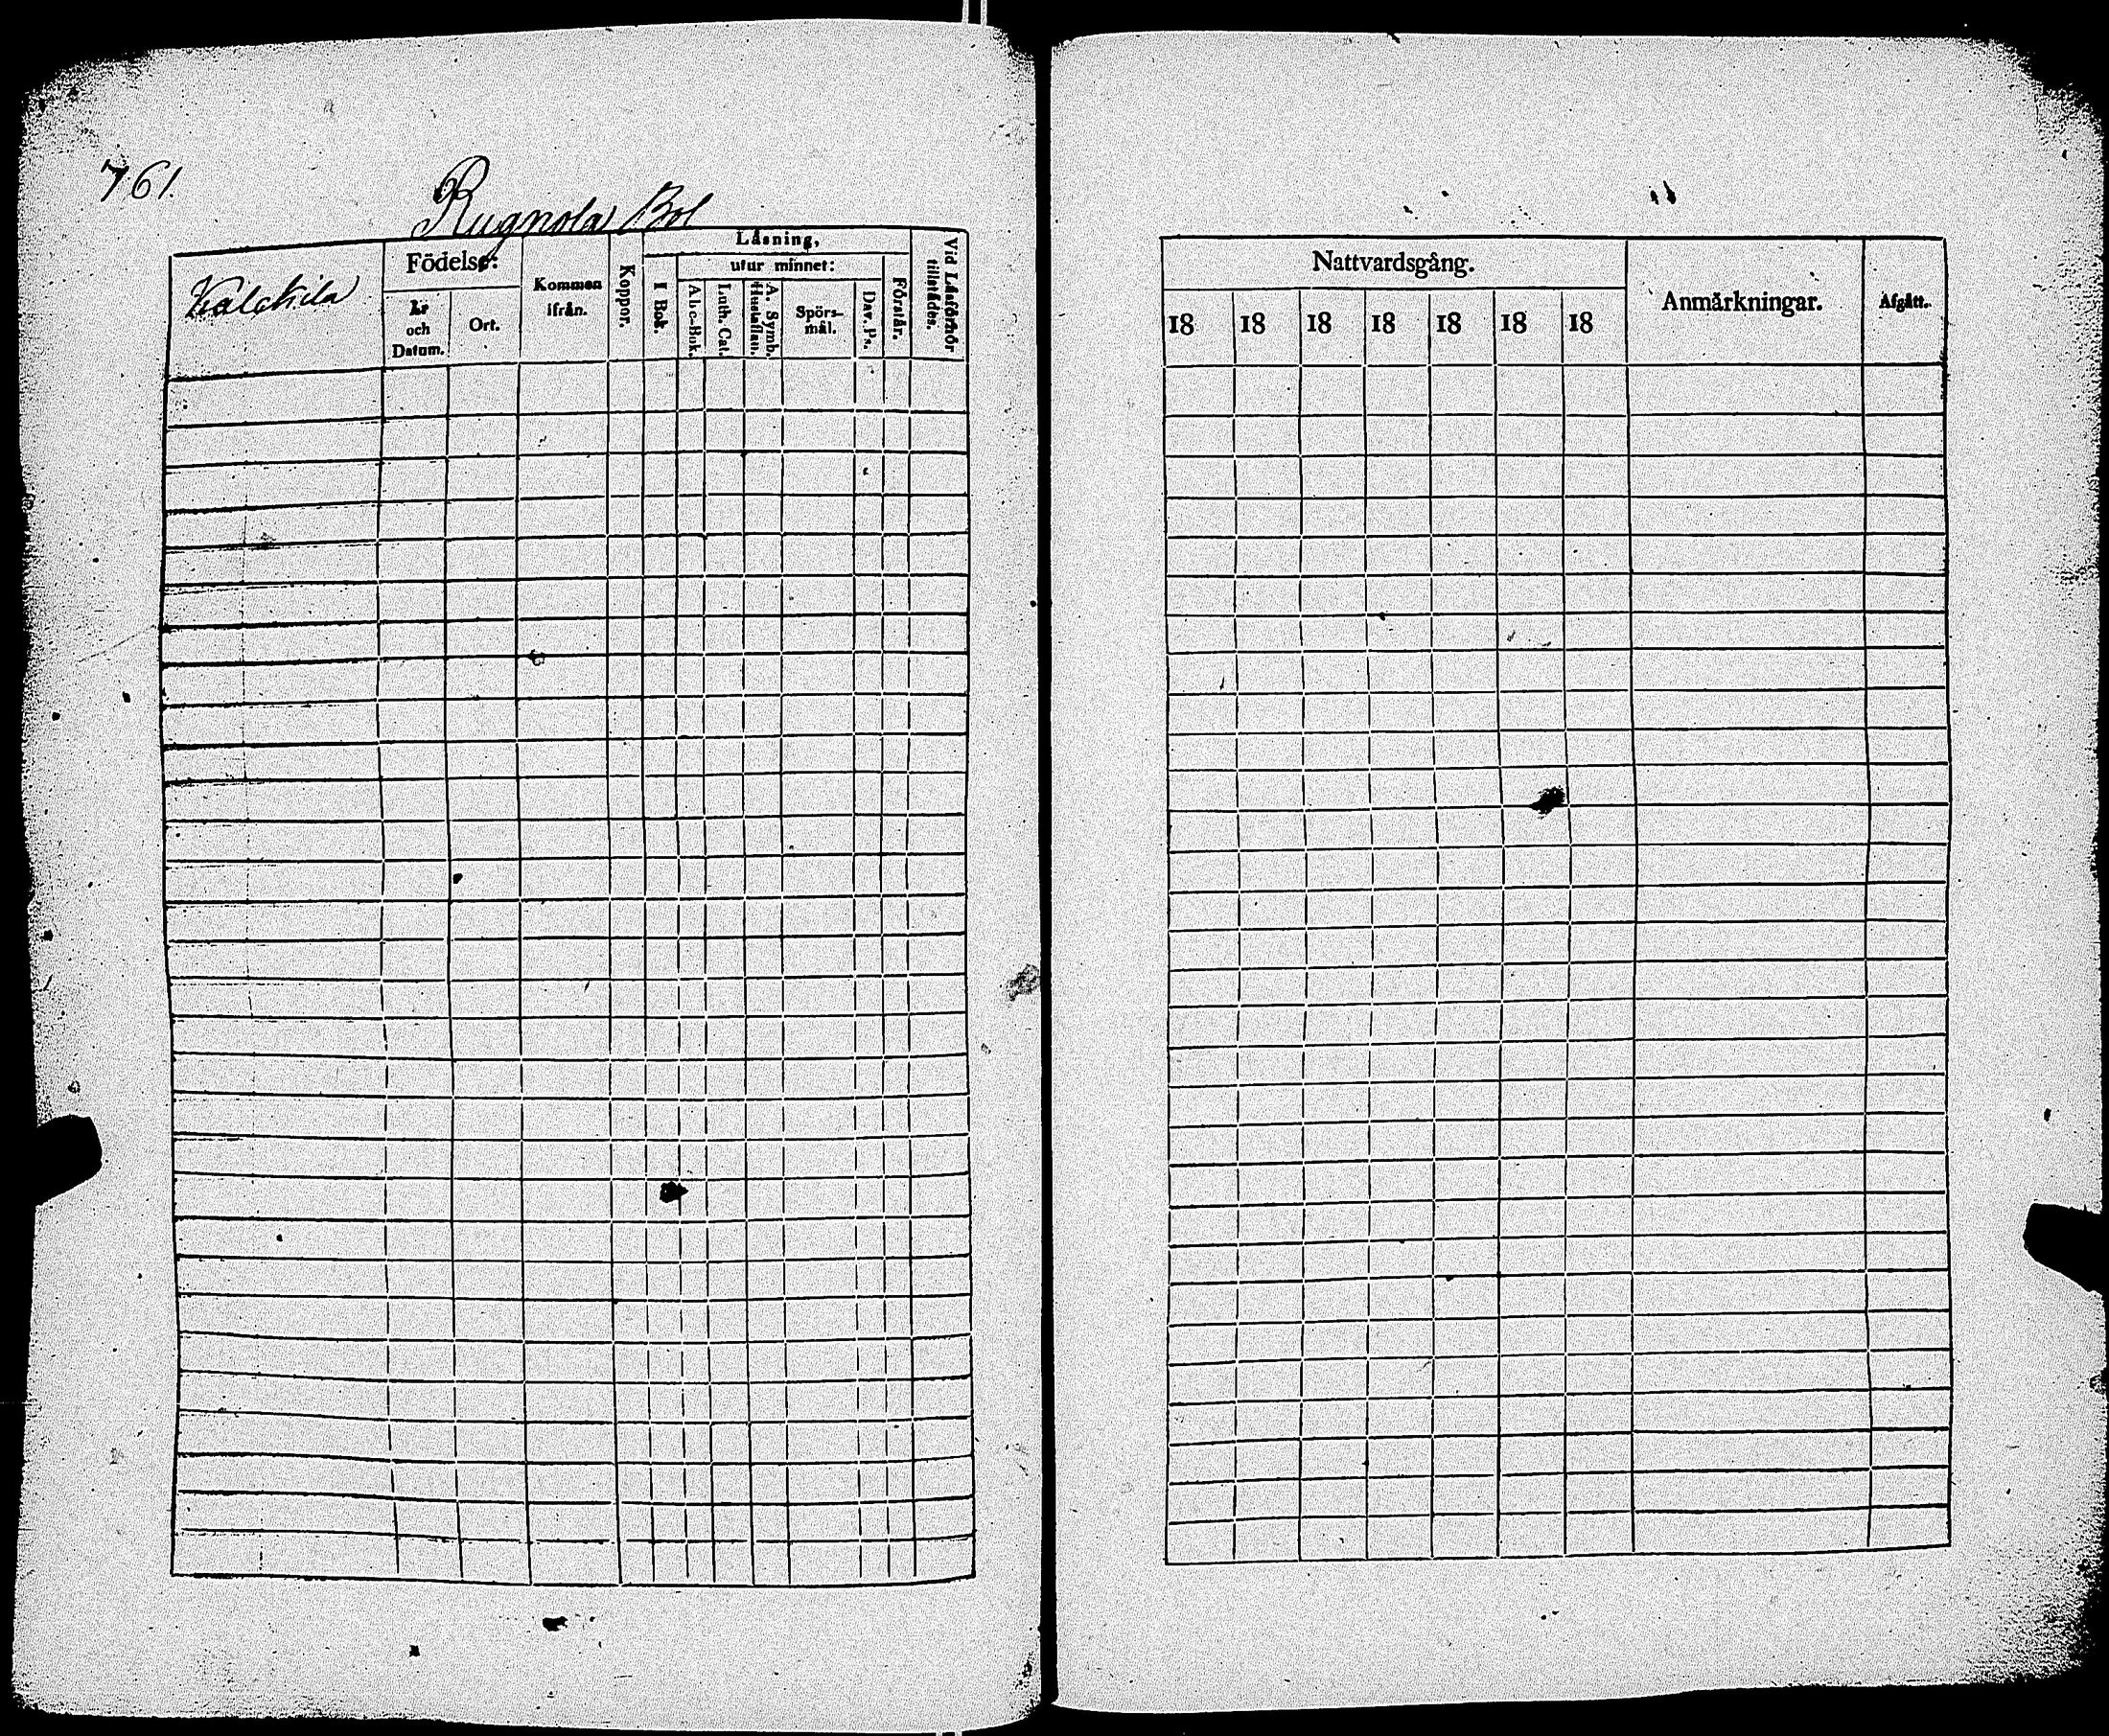 761.
Rugnola Bol
Kalckila
Födelse:
År
och
Datum.
Ort.
Kommen
ifrån.
Koppor.
Läsning,
I Bok.
utur minnet:
A-b-c-Bok.
Luth. Cat.
A. Symb.
Hustaflan.
Spörs-
mål.
Dav. Ps.
Förstår.
Vid Läsförhör
tillstädes.
Nattvardsgång.
18 18 18 18 18 18 18
Anmärkningar.
Afgått.